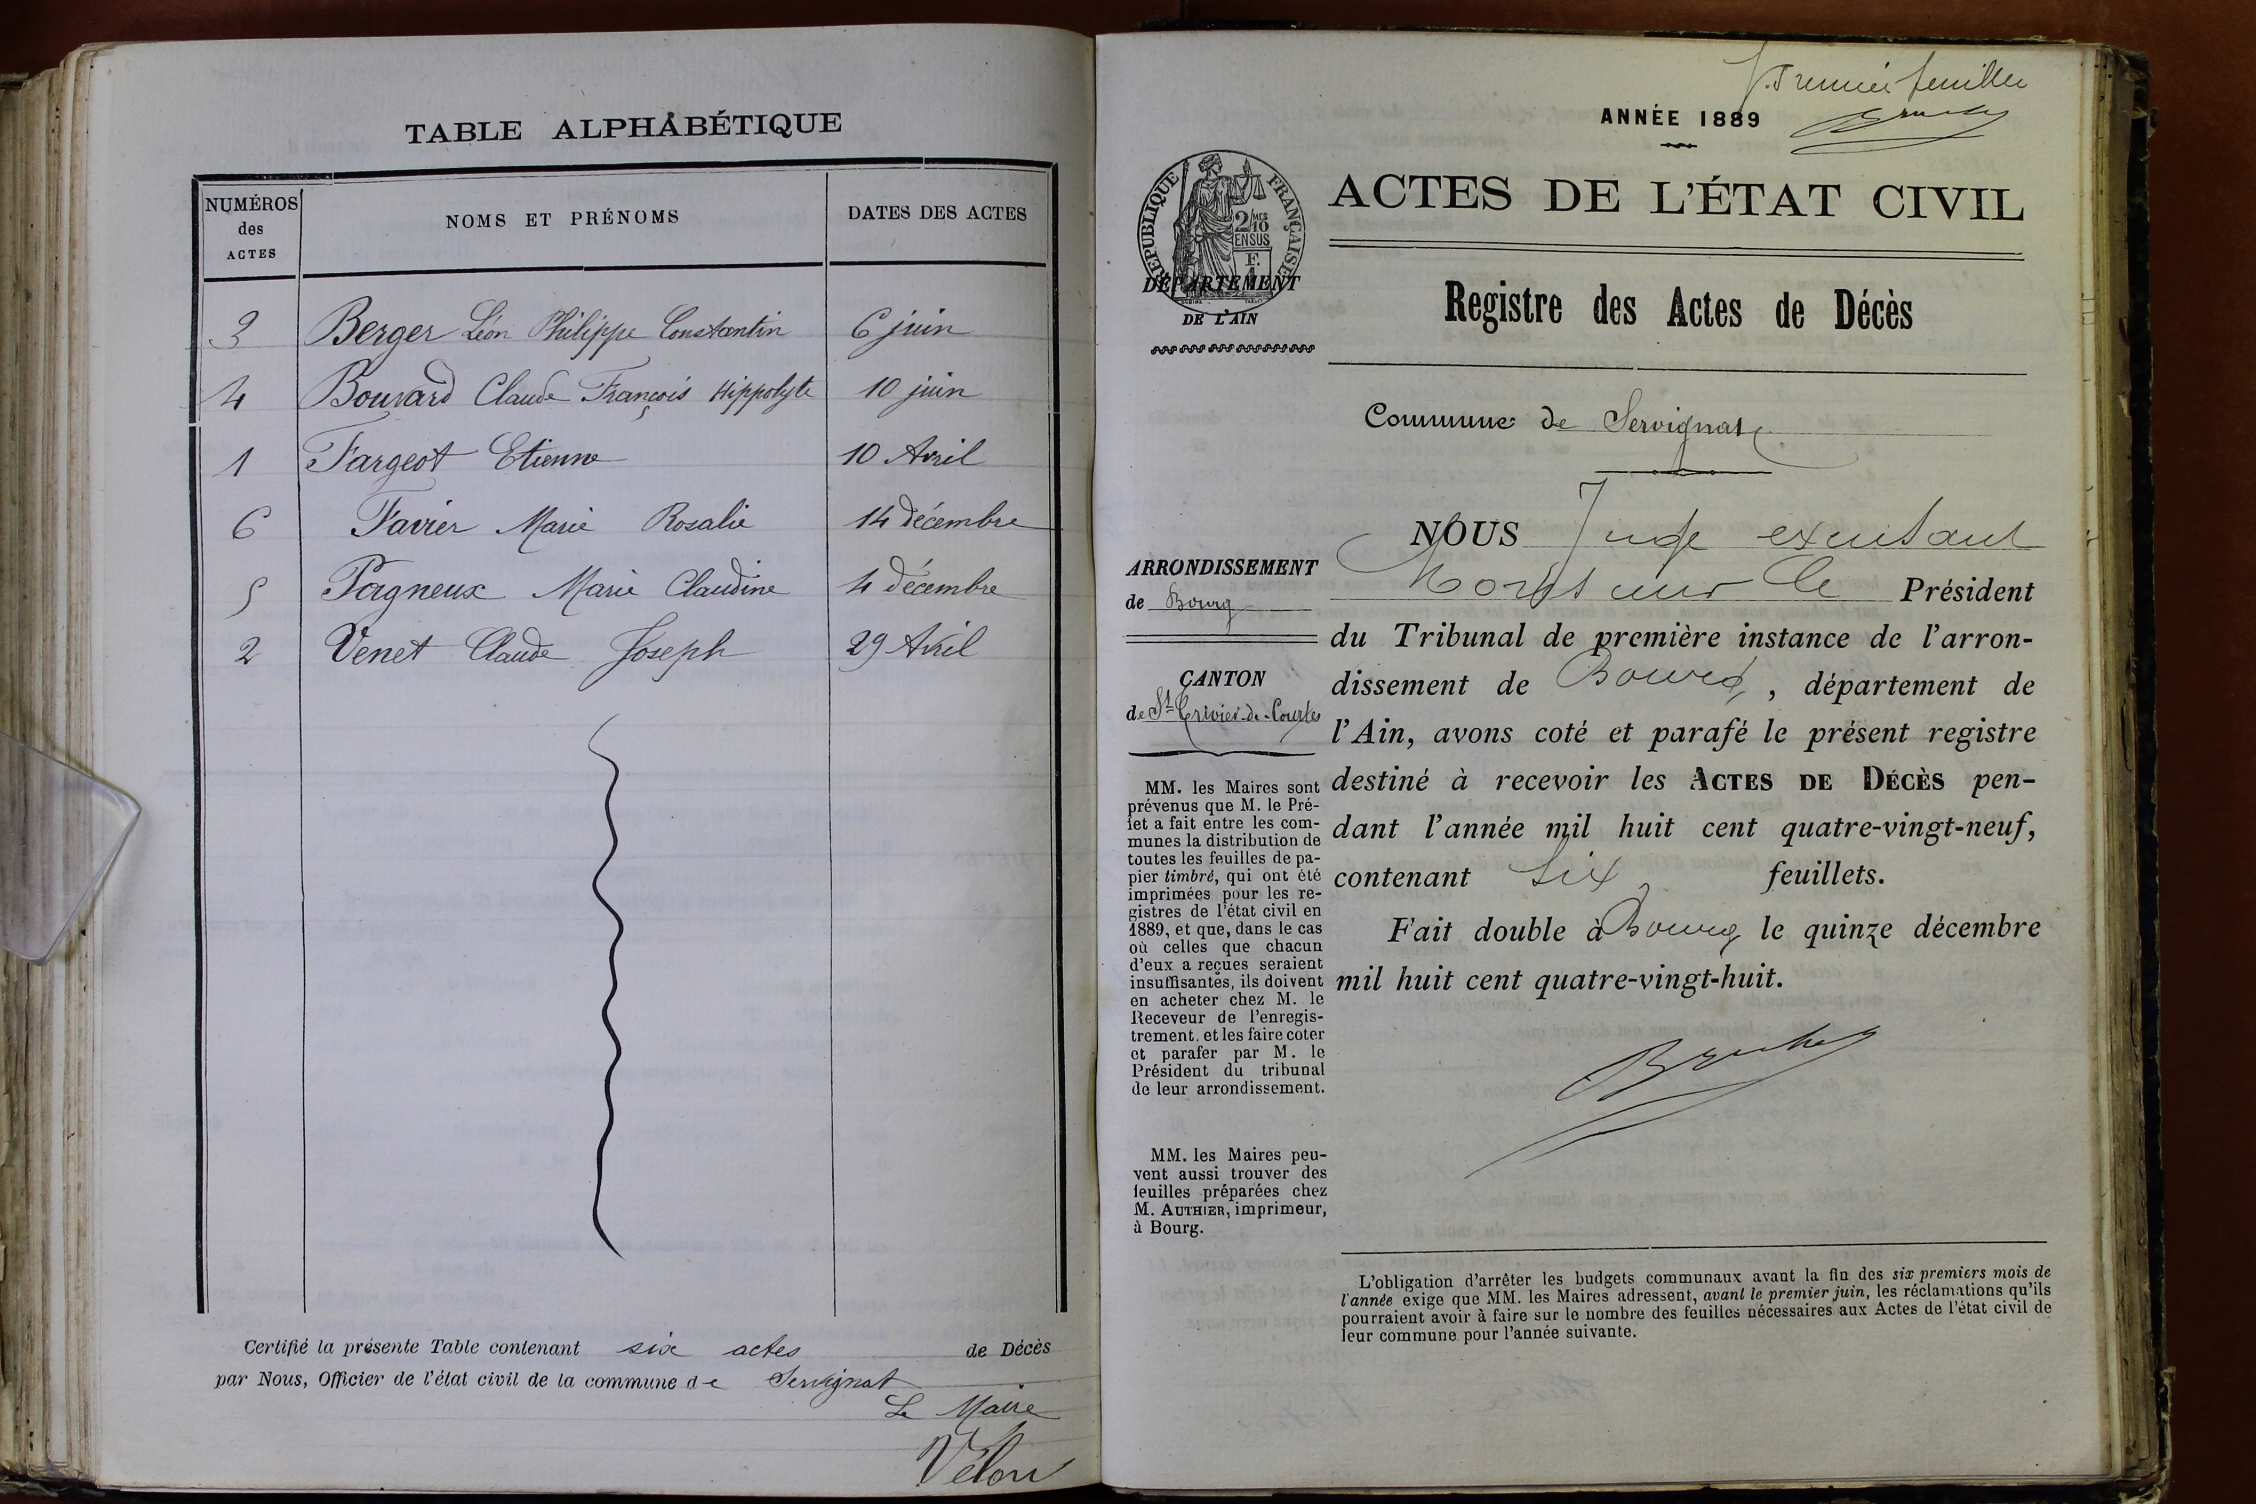 TABLE ALPHABÉTIQUE
NUMÉROS des ACTES NOMS ET PRÉNOMS DATES DES ACTES
3 Berger Léon Philippe Constantin 6 juin
4 Bouvard Claude François Hippolyte 10 juin
1 Fargeot Etienne 10 Avril
6 Favier Marie Rosalie 14 décembre
5 Pagneux Marie Claudine 4 décembre
2 Venet Claude Joseph 29 Avril
Certifié la présente Table contenant six actes de Décès
par Nous, Officier de l'état civil de la commune de Servignat
Le Maire
Velon
Premier feuillet
ANNÉE 1889
RÉPUBLIQUE FRANÇAISE
2/10 EN SUS
DÉPARTEMENT
DE L'AIN
ACTES DE L'ÉTAT CIVIL
Registre des Actes de Décès
Commune de Servignat
ARRONDISSEMENT
de Bourg
CANTON
de St Trivier-de-Courtes
MM. les Maires sont
prévenus que M. le Pré-
fet a fait entre les com-
munes la distribution de
toutes les feuilles de pa-
pier timbré, qui ont été
imprimées pour les re-
gistres de l'état civil en
1889, et que, dans le cas
où celles que chacun
d'eux a reçues seraient
insuffisantes, ils doivent
en acheter chez M. le
Receveur de l'enregis-
trement, et les faire coter
et parafer par M. le
Président du tribunal
de leur arrondissement.
MM. les Maires peu-
vent aussi trouver des
feuilles préparées chez
M. AUTHIER, imprimeur,
à Bourg.
NOUS Juge
Monsieur le Président
du Tribunal de première instance de l'arron-
dissement de Bourg, département de
l'Ain, avons coté et parafé le présent registre
destiné à recevoir les ACTES DE DÉCÈS pen-
dant l'année mil huit cent quatre-vingt-neuf,
contenant six feuillets.
Fait double à Bourg le quinze décembre
mil huit cent quatre-vingt-huit.
L'obligation d'arrêter les budgets communaux avant la fin des six premiers mois de
l'année exige que MM. les Maires adressent, avant le premier juin, les réclamations qu'ils
pourraient avoir à faire sur le nombre des feuilles nécessaires aux Actes de l'état civil de
leur commune pour l'année suivante.